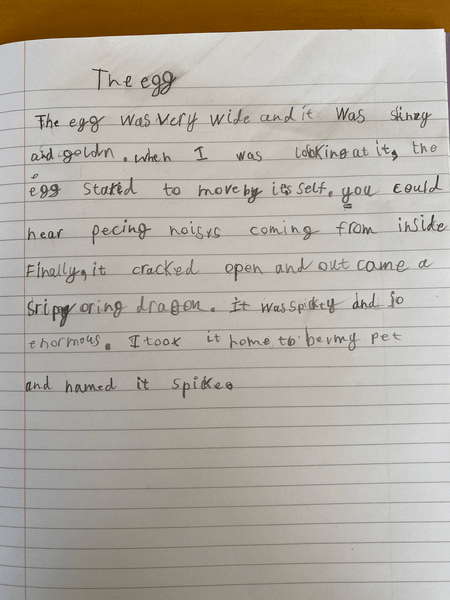 The egg
The egg was very wide and it was shiney
and goldn. when I was looking at it, the
egg stared to move by its self. you could
hear pecing noisys coming from inside
Finally, it cracked open and out came a
Stripy oring dragon. It was spikey and so
enormous. I took it home to be my pet
and named it spike.